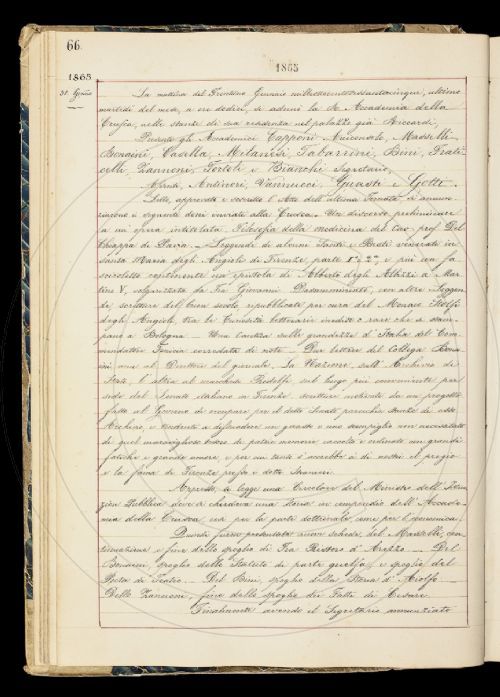 66.
1865
1865
31. Genn.º
La mattina del Trentuno Gennaio milleottocentosessantacinque, ultimo
martedì del mese, a ore dodici, si adunò la R. Accademia della
Crusca, nelle stanze di sua residenza nel palazzo già Riccardi.
Presenti gli Accademici Capponi Arciconsolo, Masselli,
Bonaini, Casella, Milanesi, Tabarrini, Bini, Frati-
celli, Zannoni, Tortoli e Bianchi Segretario,
Assenti, Antinori, Vannucci, Guasti e Gotti.
Letto, approvato e corretto l'Atto dell'ultima Tornata, si annun-
ziarono i seguenti doni inviati alla Crusca. Un discorso preliminare
a un'opera intitolata Filosofia della medicina del cav. prof. Del
Chiappa di Pavia. — Leggende di alcuni Santi e Beati venerati in
Santa Maria degli Angioli di Firenze, parte 1ª e 2ª, e più un fa-
scicoletto contenente una epistola di Alberto degli Albizzi a Mar-
tino V, volgarizzata da Fra Giovanni con altre Leggen-
de, scritture del buon secolo ripubblicate per cura del Monaco
degli Angioli, tra le Curiosità letterarie inedite o rare che si stam-
pano a Bologna — Una Cantica sulle grandezze d'Italia del Com-
mendatore corredata di note — Due lettere del Collega Bona-
ini una al Direttore del giornale, La Nazione, sull'Archivio di
Stato, l'altra al marchese Ridolfi sul luogo più conveniente per
sede del Senato italiano in Firenze, scritture motivate da un progetto
fatto al Governo di occupare per il detto Senato parecchie stanze di esso
Archivio, e tendenti a difendere un guasto e uno scompiglio non necessitato
di quel maraviglioso tesoro di patrie memorie raccolte e ordinate con grandi
fatiche e grande amore, e per cui tanto s'accrebbe a dì nostri il pregio
e la fama di Firenze presso i dotti stranieri.
Appresso, si legge una Circolare del Ministro dell'Istru-
zion Pubblica dove si chiedeva una Storia in compendio dell'Accade-
mia della Crusca sia per la parte dottrinale come per l'economica.
Quindi furono presentate alcune schede, del Masselli, con-
tinuazione e fine dello spoglio di Fra Ristoro d'Arezzo. — Del
Bonaini, spoglio dello Statuto di parte guelfa e spoglio del
— Del Bini, spoglio della Storia d'Aiolfo —
Dello Zannoni, fine dello spoglio dei Fatti di Cesare.
Finalmente avendo il Segretario annunziato